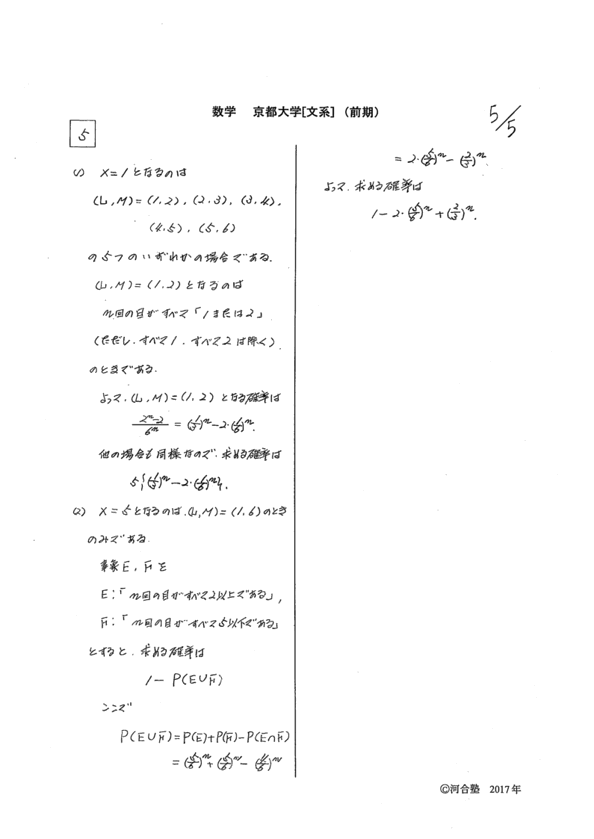 数学 京都大学[文系] (前期)
5/5
5
(1) X=1となるのは
(L,M)=(1,2),(2,3),(3,4),
(4,5),(5,6)
の5つのいずれかの場合である.
(L,M)=(1,2)となるのは
n回の目がすべて「1または2」
(ただし,すべて1,すべて2は除く)
のときである.
よって,(L,M)=(1,2)となる確率は
(2^n-2)/6^n = (1/3)^n-2・(1/6)^n.
他の場合も同様なので,求める確率は
5{(1/3)^n-2・(1/6)^n}.
(2) X=5となるのは,(L,M)=(1,6)のとき
のみである.
事象E,Fを
E:「n回の目がすべて2以上である」,
F:「n回の目がすべて5以下である」
とすると,求める確率は
1-P(E∪F)
ここで
P(E∪F)=P(E)+P(F)-P(E∩F)
=(5/6)^n+(5/6)^n-(4/6)^n
=2・(5/6)^n-(2/3)^n.
よって,求める確率は
1-2・(5/6)^n+(2/3)^n.
©河合塾 2017年